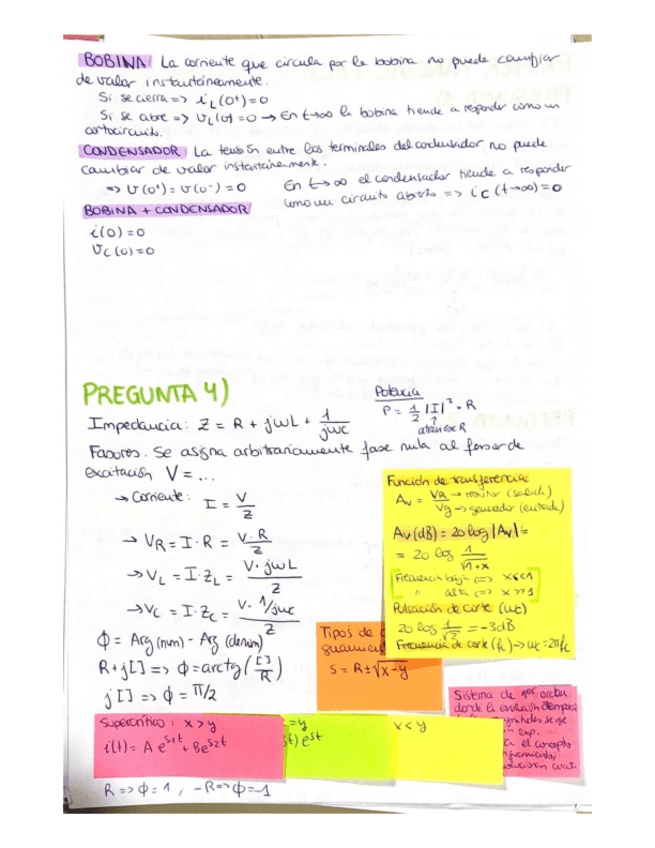 BOBINA: La corriente que circula por la bobina no puede cambiar
de valor instantáneamente.
Si se cierra => i_L(0+)=0
Si se abre => v_L(0+)=0 → En t→∞ la bobina tiende a responder como un
cortocircuito.
CONDENSADOR: La tensión entre los terminales del condensador no puede
cambiar de valor instantáneamente.
=> v(0+)=v(0-)=0
En t→∞ el condensador tiende a responder
como un circuito abierto => i_C(t→∞)=0
BOBINA + CONDENSADOR
i(0)=0
v_C(0)=0
PREGUNTA 4)
Potencia
P = 1/2 |I|² · R
Impedancia: Z = R + jωL + 1/jωc
Fasores. Se asigna arbitrariamente fase nula al fasor de
excitación V = ...
→ Corriente: I = V/Z
→ V_R = I·R = V·R/Z
→ V_L = I·Z_L = V·jωL/Z
→ V_C = I·Z_C = V·1/jωc/Z
ϕ = Arg(num) - Arg(denom)
R+j[] => ϕ = arctg([]/R)
j[] => ϕ = π/2
Función de transferencia:
A_V = V_R → resistor (salida)
V_g → generador (entrada)
A_V(dB) = 20 log |A_V| =
= 20 log 1/√1+x
Frecuencia baja <=> x<<1
" alta <=> x>>1
Pulsación de corte (ωc)
20 log 1/√2 = -3dB
Frecuencia de corte (fc) → ωc = 2πfc
Tipos de
s = R±√x-y
Sistema de 1er orden
donde la evolución
el concepto
Supercrítico: x>y
i(t) = A e^{s1t} + B e^{s2t}
=y
t) e^{st}
x<y
R => ϕ = 1, -R => ϕ = -1